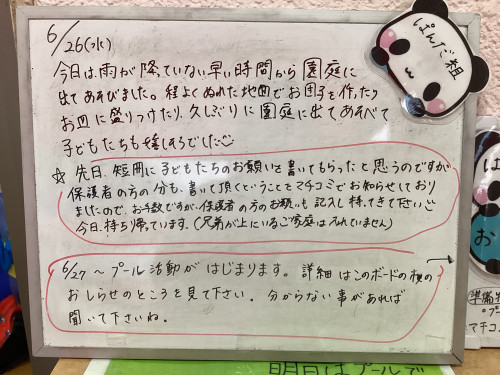 6/26(水)
ぱんだ組
今日は雨が降っていない早い時間から園庭に
出てあそびました。程よくぬれた地面でお団子を作ったり
お皿に盛りつけたり、久しぶりに園庭に出てあそべて
子どもたちも嬉しそうでした
☆ 先日、短冊に子どもたちのお願いを書いてもらったと思うのですが
保護者の方の分も、書いて頂くということをマチコミでお知らせしており
ましたので、お手数ですが、保護者の方のお願いも記入し持ってきて下さい
今日、持ち帰っています。(兄弟が上にいるご家庭は入れていません)
6/27〜プール活動がはじまります。詳細はこのボードの横の
おしらせのところを見て下さい。分からない事があれば
聞いて下さいね。
お
準備
マチコ
明日はプールで